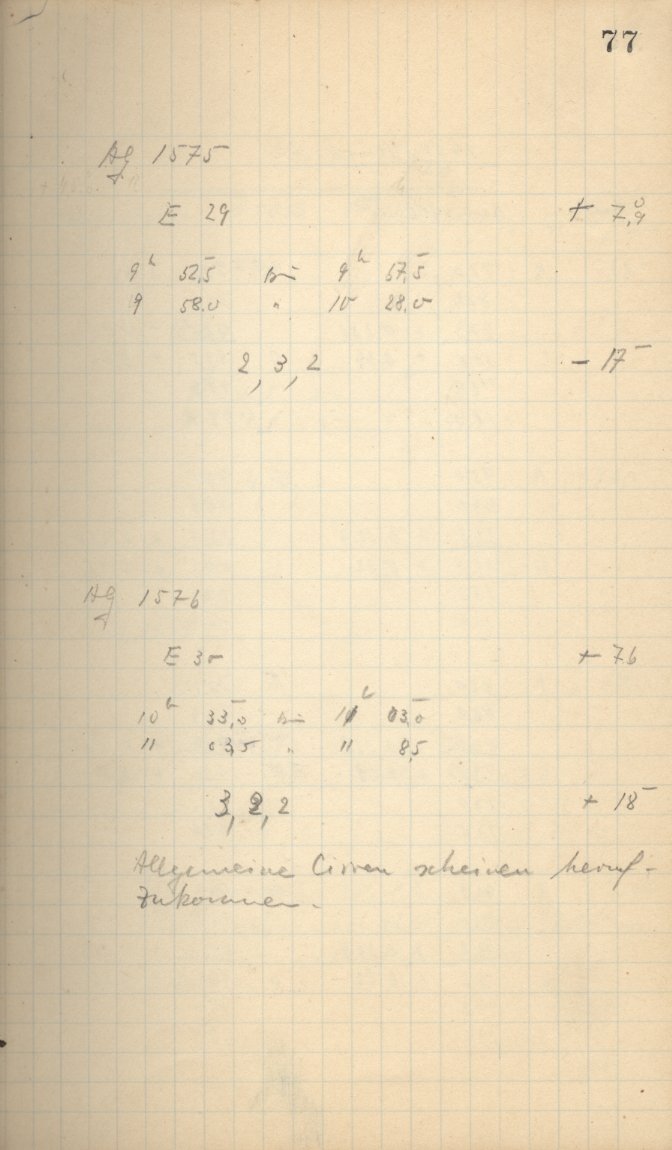 77
AG 1575
E 29 + 7,9°
9ʰ 52,5⁻ bis 9ʰ 57,5⁻
9 58.0 " 10 28.0
2, 3, 2 - 17⁻
AG 1576
E 30 + 76
10ʰ 33,0⁻ bis 11ʰ 03,0⁻
11 03,5 " 11 8,5
3, 2, 2 + 18⁻
Allgemeine Cirren scheinen herauf-
zukommen.